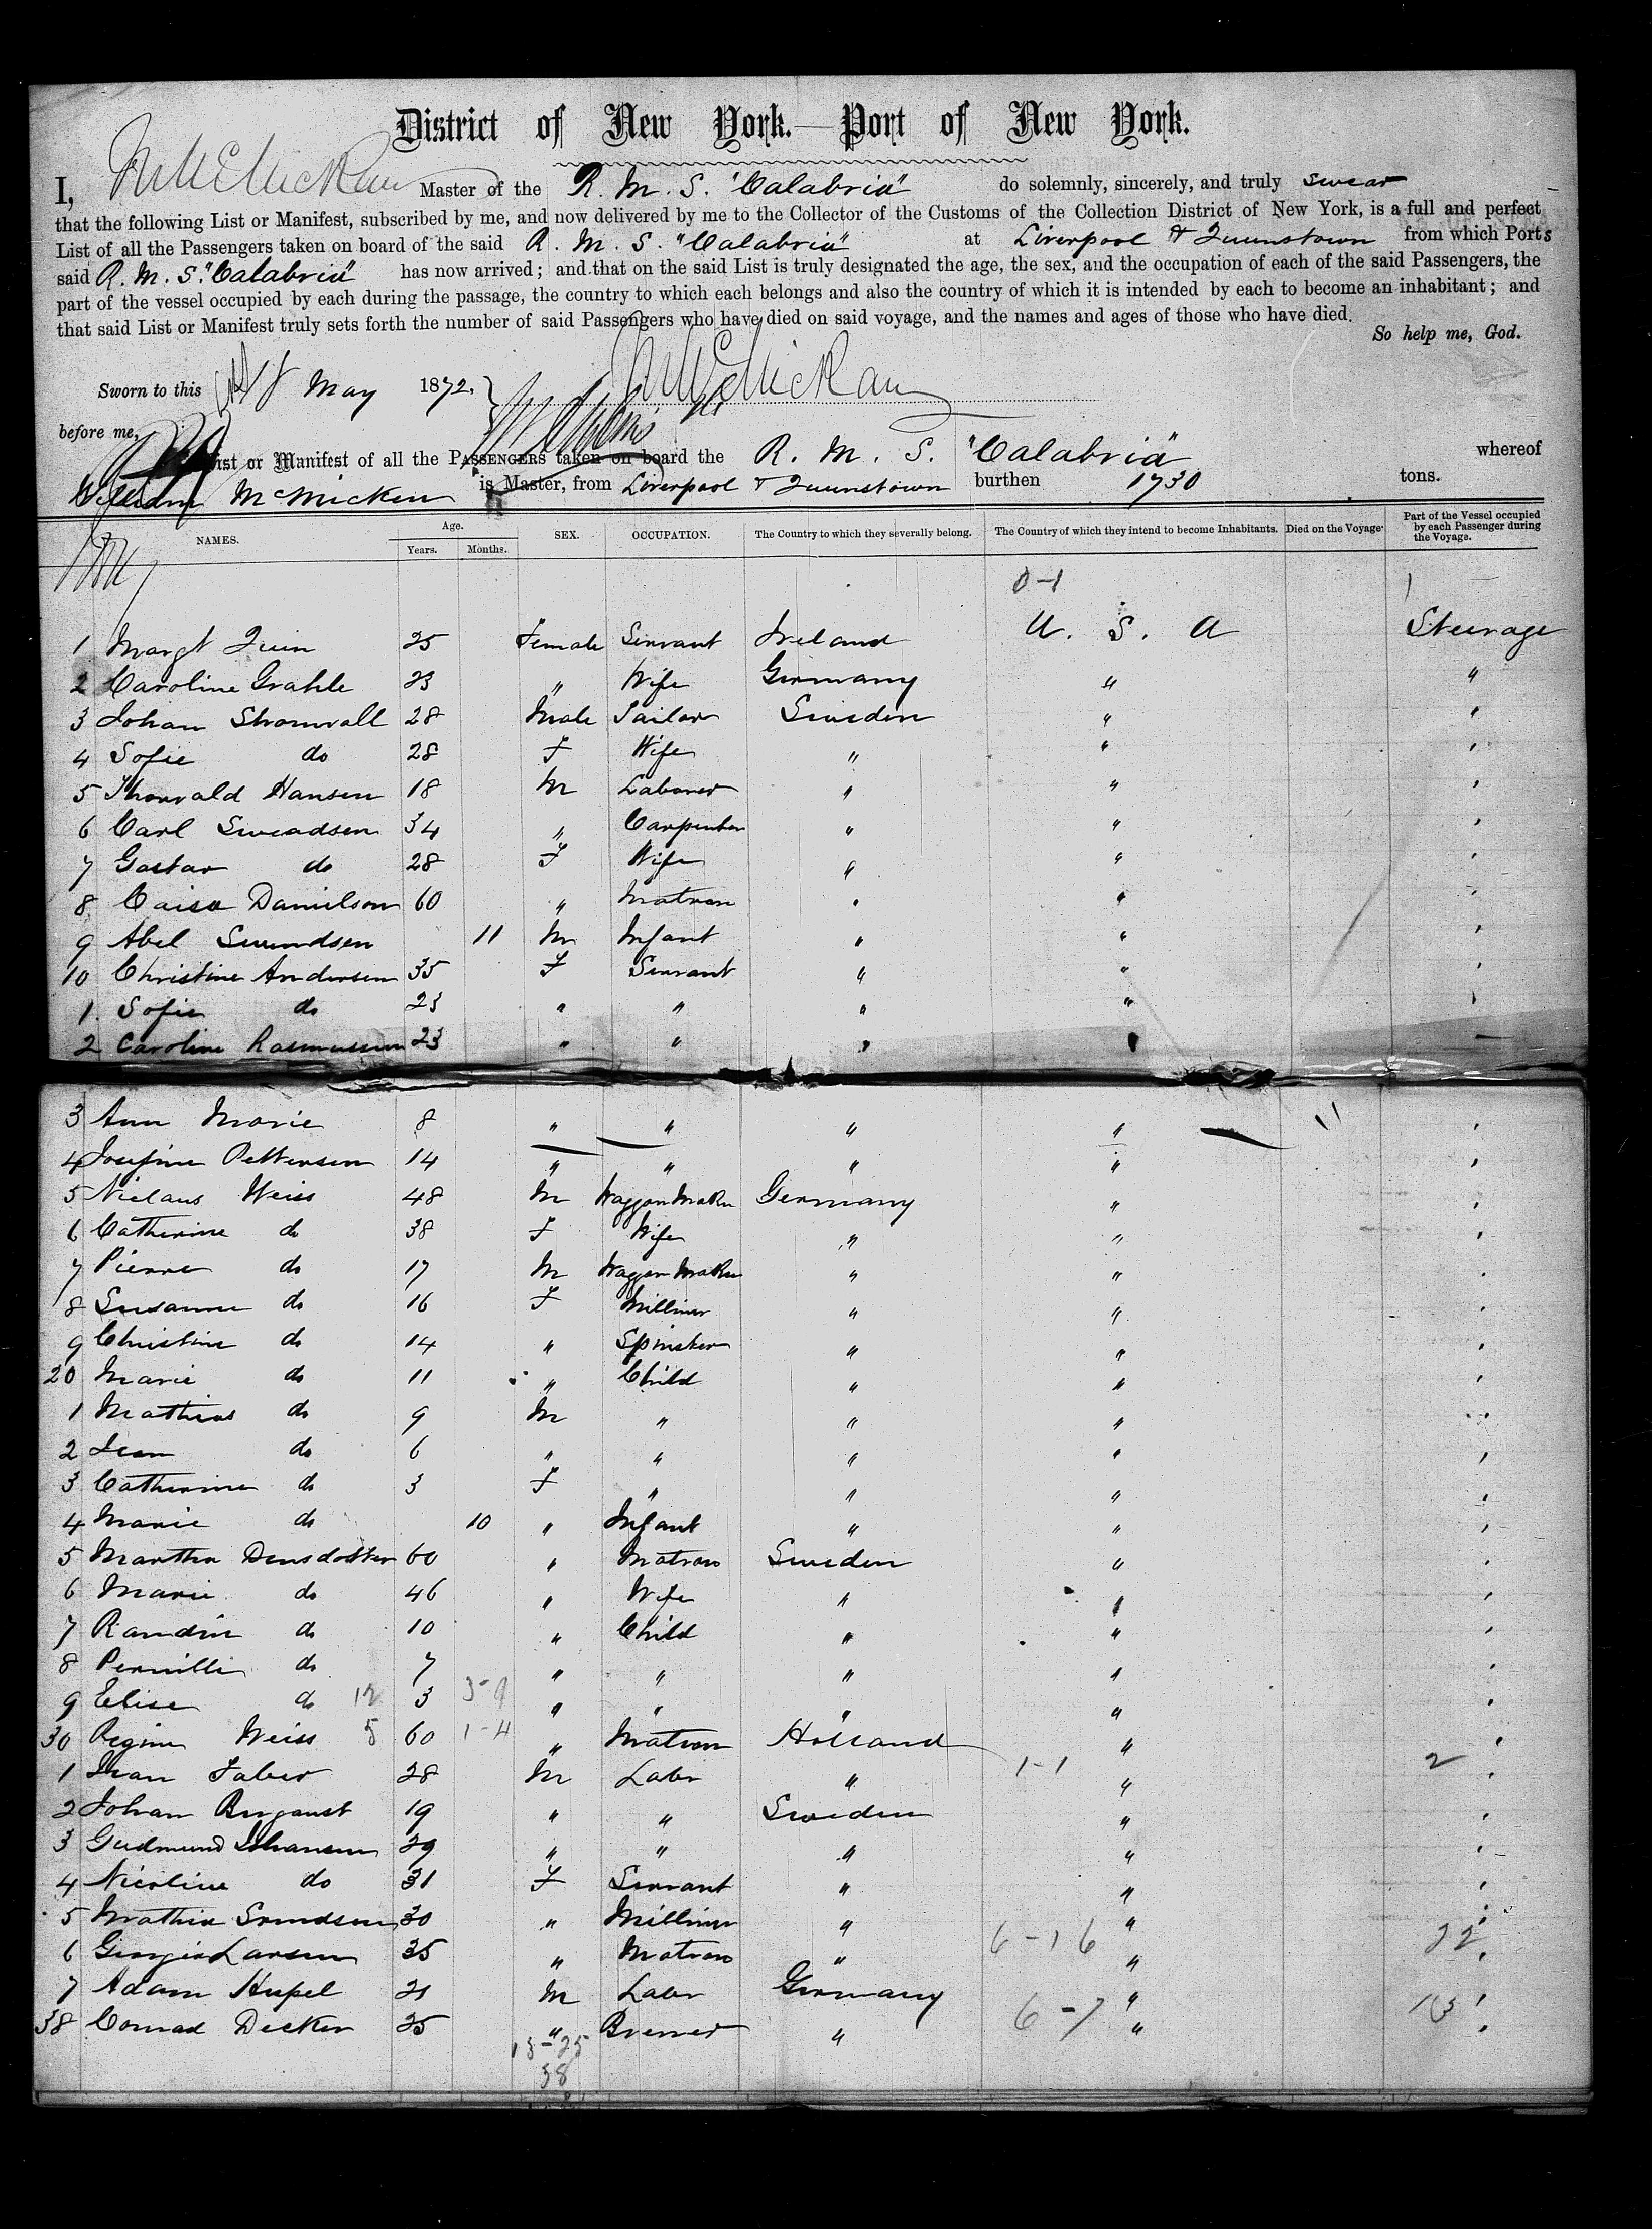 District of New York.—Port of New York.
I, Master of the R. M. S. "Calabria" do solemnly, sincerely, and truly swear
that the following List or Manifest, subscribed by me, and now delivered by me to the Collector of the Customs of the Collection District of New York, is a full and perfect
List of all the Passengers taken on board of the said R. M. S. "Calabria" at Liverpool & Queenstown from which Ports
said R. M. S. "Calabria" has now arrived; and that on the said List is truly designated the age, the sex, and the occupation of each of the said Passengers, the
part of the vessel occupied by each during the passage, the country to which each belongs and also the country of which it is intended by each to become an inhabitant; and
that said List or Manifest truly sets forth the number of said Passengers who have died on said voyage, and the names and ages of those who have died.
So help me, God.
Sworn to this 18 May 1872.
before me,
List or Manifest of all the PASSENGERS taken on board the R. M. S. "Calabria" whereof
McMicken is Master, from Liverpool & Queenstown burthen 1730 tons.
NAMES. Age. Years. Months. SEX. OCCUPATION. The Country to which they severally belong. The Country of which they intend to become Inhabitants. Died on the Voyage. Part of the Vessel occupied by each Passenger during the Voyage.
0-1 1
1 Margt Quin 25 Female Servant Ireland U. S. A Steerage
2 Caroline Grahle 23 " Wife Germany " "
3 Johan Stromvall 28 Male Tailor Sweden " "
4 Sofie do 28 F Wife " " "
5 Thorvald Hansen 18 M Laborer " " "
6 Carl Sweadsen 34 " Carpenter " " "
7 Gustav do 28 F Wife " " "
8 Caisa Danielson 60 " Matron " " "
9 Abel Swendsen 11 M Infant " " "
10 Christine Andersen 35 F Servant " " "
1 Sofie do 23 " " " " "
2 Caroline Rasmussen 23 " " " "
3 Ann Marie 8 " " " " "
4 Josefine Pettersen 14 " " " " "
5 Niclaus Weiss 48 M Waggon Maker Germany " "
6 Catherine do 38 F Wife " " "
7 Pierre do 17 M Waggon Maker " " "
8 Susanne do 16 F Milliner " " "
9 Christine do 14 " Spinster " " "
20 Marie do 11 " Child " " "
1 Mathias do 9 M " " " "
2 Jean do 6 " " " " "
3 Catherine do 3 F " " " "
4 Marie do 10 " Infant " " "
5 Martha Densdotter 60 " Matron Sweden " "
6 Marie do 46 " Wife " " "
7 Randin do 10 " Child " " "
8 Pernille do 7 " " " " "
9 Elise do 12 3 3-9 " " " " "
30 Regine Weiss 5 60 1-4 " Matron Holland " "
1 Jean Faber 28 M Labr " 1-1 " 2 "
2 Johan 19 " " Sweden " "
3 Gudmund Johansen 29 " " " " "
4 Nicoline do 31 F Servant " " "
5 Mathia 30 " Milliner " " "
6 Larsen 35 " Matron " 6-16 " 22 "
7 Adam Hupel 21 M Labr Germany " "
38 Conrad Decker 25 " Brewer " 6-7 " "
13-25
38